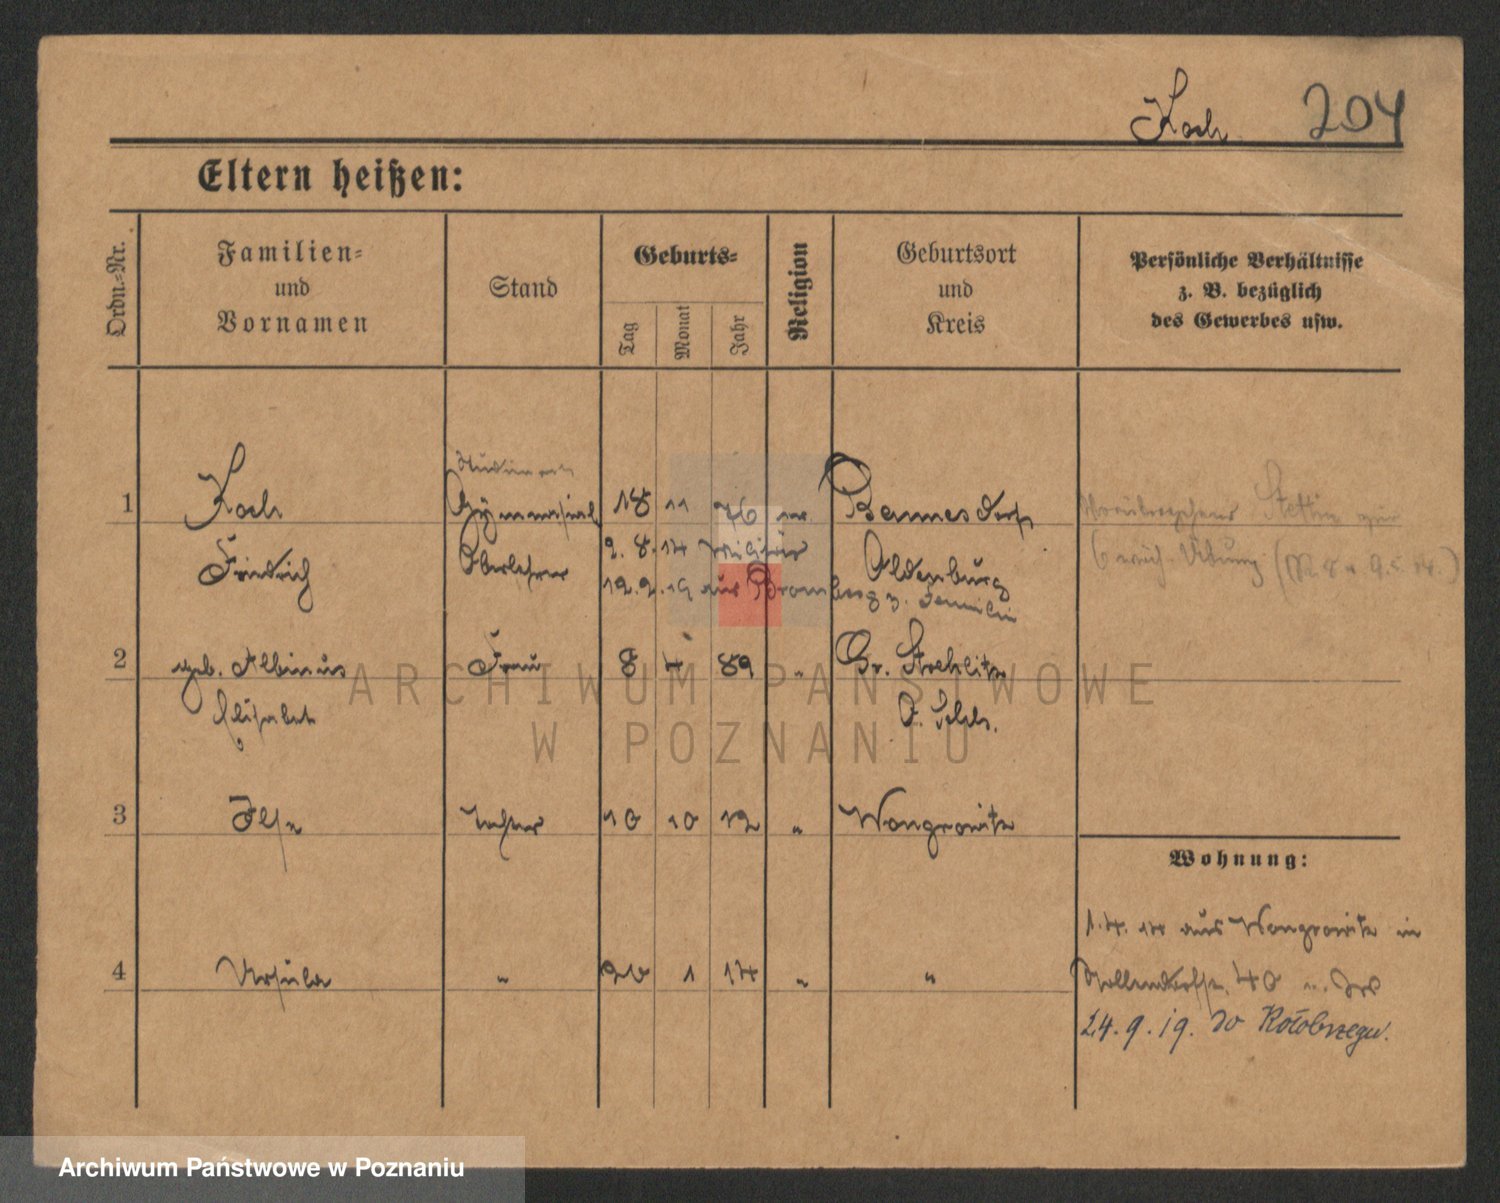 Koch 204
Eltern heißen:
Ordn.-Nr.
Familien-
und
Vornamen
Stand
Geburts-
Tag
Monat
Jahr
Religion
Geburtsort
und
Kreis
Persönliche Verhältnisse
z. B. bezüglich
des Gewerbes usw.
1 Koch Gymnasial 18 11 76 ev.
Friedrich Oberlehrer 2. 8. 14 Militär Oldenburg
12. 2. 19 aus Bromberg z. Familie
Stettin
Übung
2 geb. Albinus Frau 8 4 89 " Gr. Strehlitz
Elisabet O. Schls.
3 Ilse Tochter 10 10 12 " Wongrowitz
Wohnung:
1. 4. 14 aus Wongrowitz in
4 Ursula " 20 1 14 " "
40
24. 9. 19. do Kołobrzegu.
ARCHIWUM PAŃSTWOWE
W POZNANIU
Archiwum Państwowe w Poznaniu